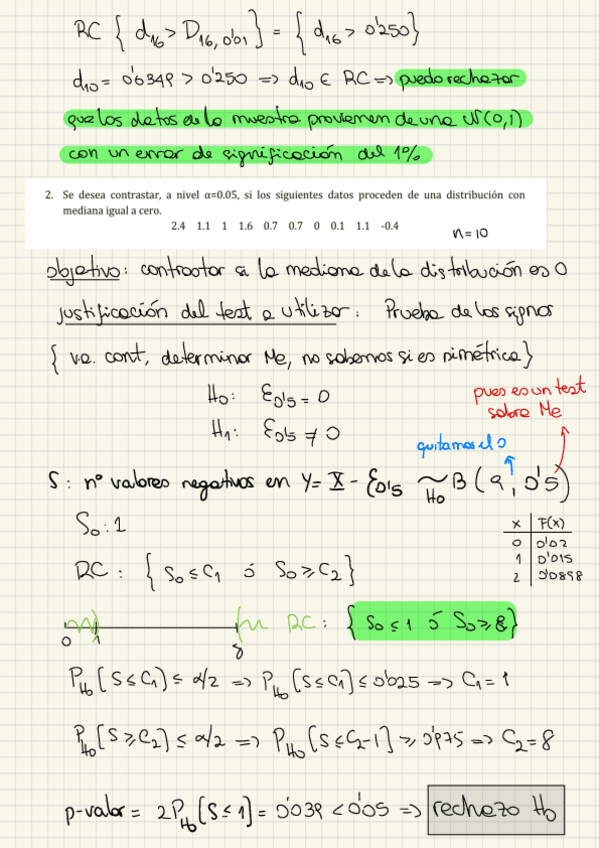 RC { d16 > D16, 0'01 } = { d16 > 0'250 }
d10 = 0'6349 > 0'250 => d10 ∈ RC => puedo rechazar
que los datos de la muestra provienen de una N(0,1)
con un error de significación del 1%
2. Se desea contrastar, a nivel α=0.05, si los siguientes datos proceden de una distribución con
mediana igual a cero.
2.4 1.1 1 1.6 0.7 0.7 0 0.1 1.1 -0.4
n=10
objetivo: contrastar si la mediana de la distribución es 0
justificación del test a utilizar: Prueba de los signos
{ va. cont, determinar Me, no sabemos si es simétrica }
H0: ε0'5 = 0
H1: ε0'5 ≠ 0
pues es un test
sobre Me
quitamos el 0
S: nº valores negativos en Y = X - ε0'5 ~H0 B(9, 0'5)
S0: 1
x F(x)
0 0'02
1 0'015
2 0'0898
RC: { S0 ≤ C1 ó S0 ≥ C2 }
0 1 8
RC: { S0 ≤ 1 ó S0 ≥ 8 }
PH0 [S ≤ C1] ≤ α/2 => PH0 [S ≤ C1] ≤ 0'025 => C1 = 1
PH0 [S ≥ C2] ≤ α/2 => PH0 [S ≤ C2-1] ≥ 0'975 => C2 = 8
p-valor = 2PH0 [S ≤ 1] = 0'039 < 0'05 => rechazo H0